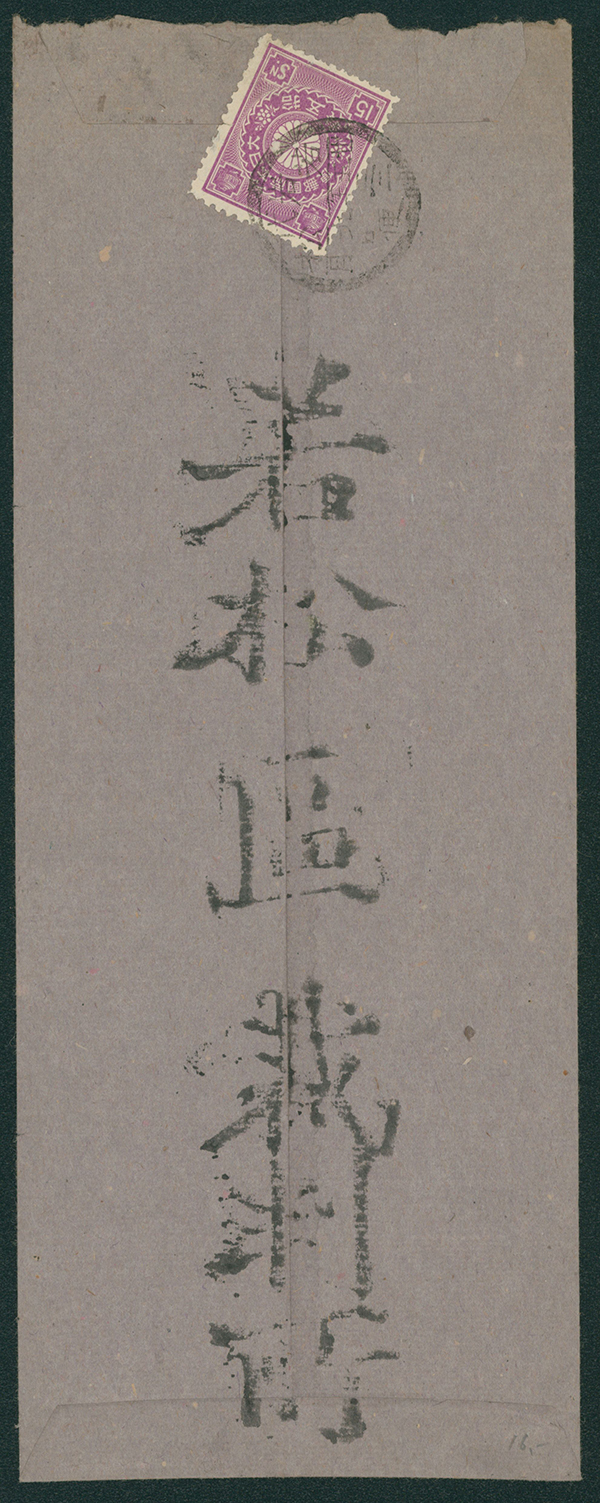 15 SN.
拾五
大日本帝國郵便
三便
若松區裁判所
16,-